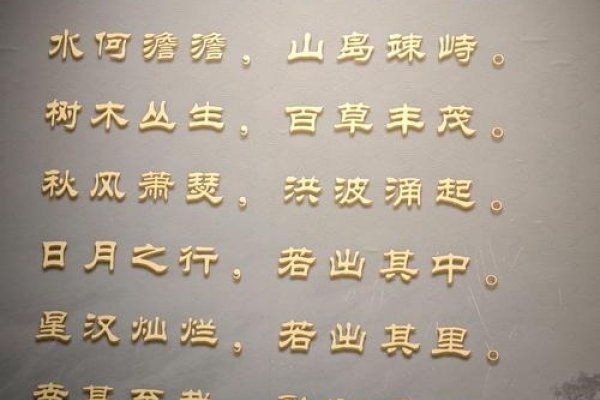 水何澹澹，山岛竦峙。
树木丛生，百草丰茂。
秋风萧瑟，洪波涌起。
日月之行，若出其中。
星汉灿烂，若出其里。
幸甚至哉